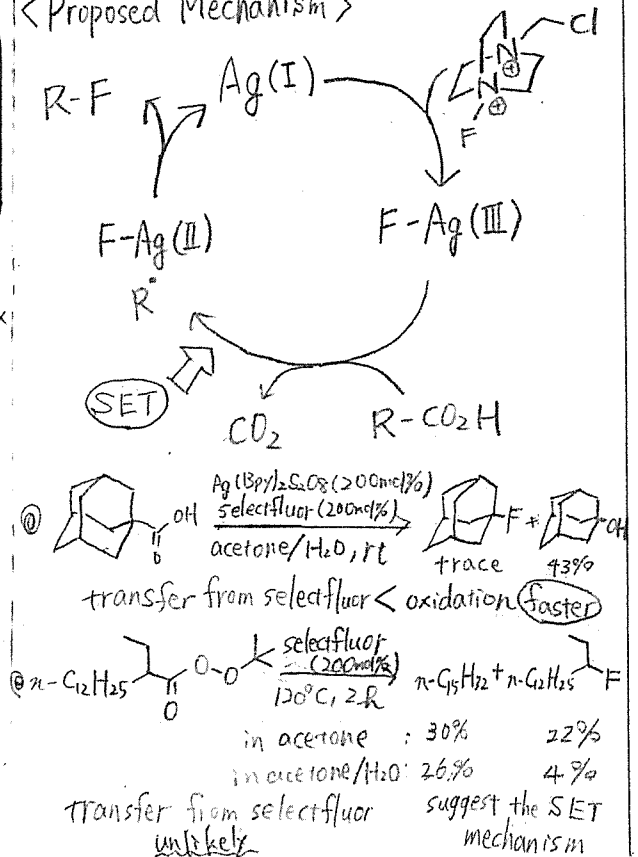 <Proposed Mechanism>
Cl
N
⊕
N
⊕
F
R-F
Ag(I)
F-Ag(II)
R•
F-Ag(III)
SET
CO2
R-CO2H
Ag(Bpy)2S2O8(200mol%)
selectfluor(200mol%)
acetone/H2O, rt
OH
O
F +
OH
trace
43%
transfer from selectfluor < oxidation faster
n-C12H25
O
O-O
selectfluor
(200mol%)
120°C, 2h
n-C15H32 + n-C12H25
F
in acetone : 30% 22%
in acetone/H2O: 26% 4%
transfer from selectfluor
unlikely
suggest the SET
mechanism